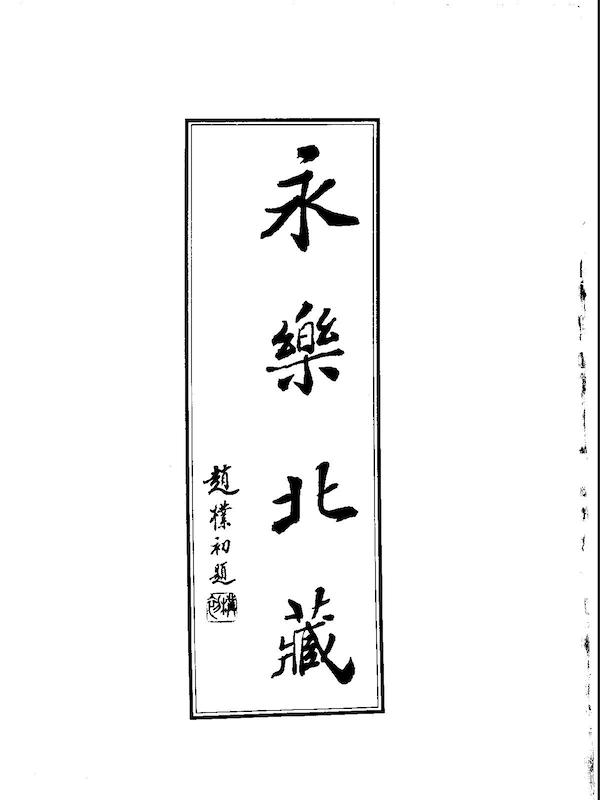 永樂北藏
趙樸初題